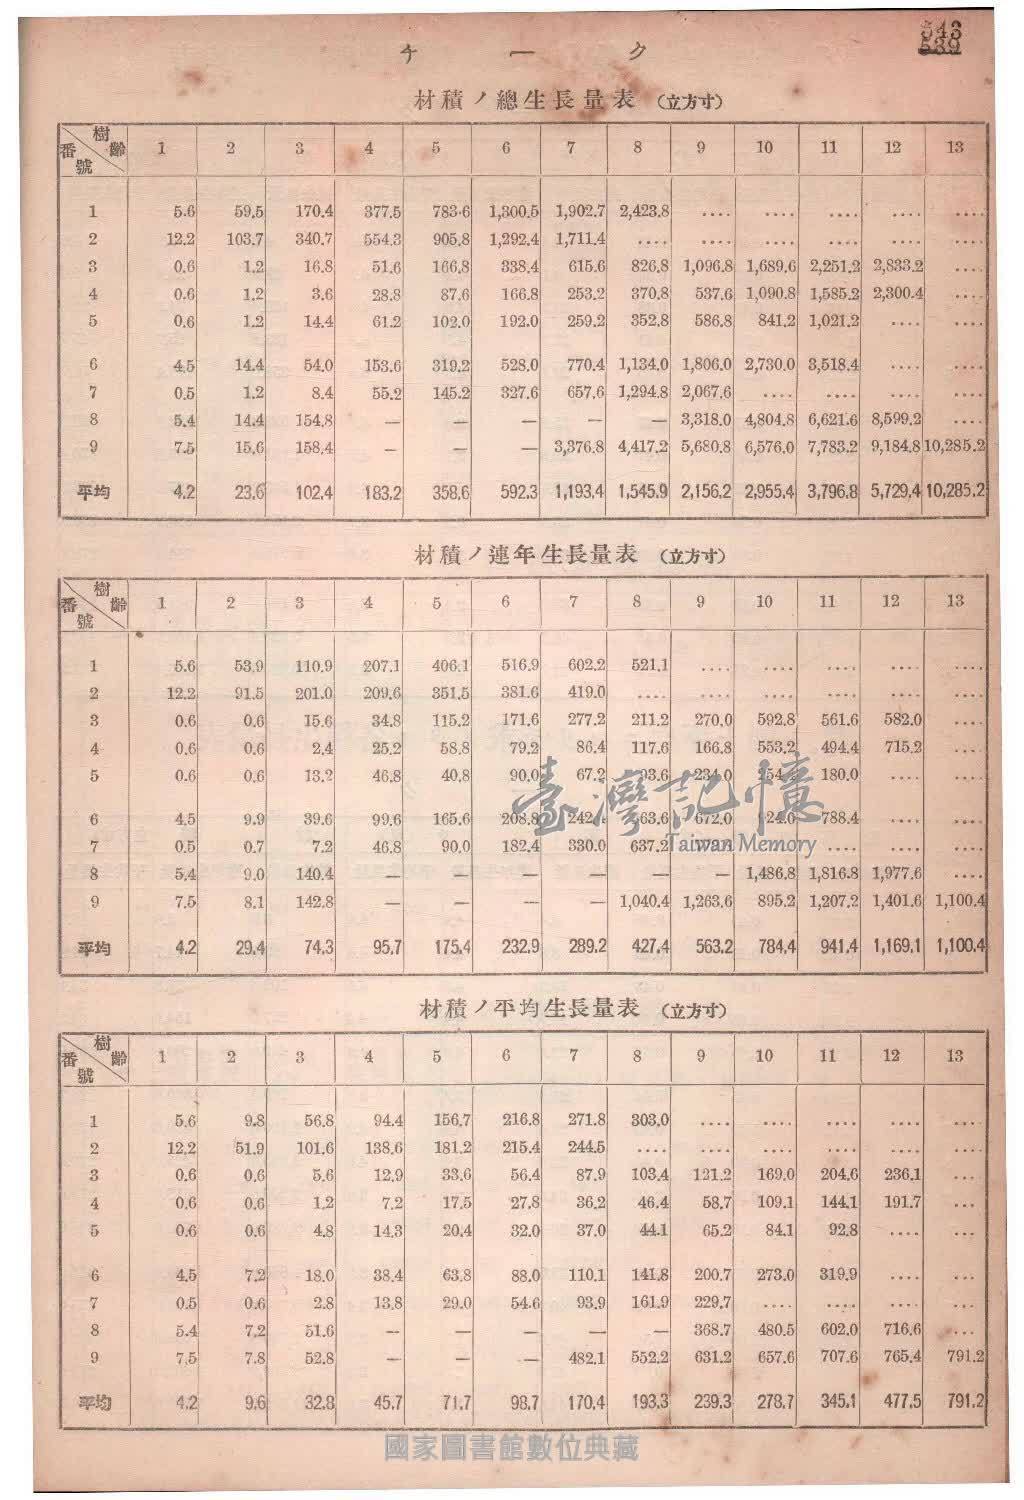 543
539
チーク
材積ノ總生長量表 (立方寸)
樹齡 番號 1 2 3 4 5 6 7 8 9 10 11 12 13
1 5.6 59.5 170.4 377.5 783.6 1,300.5 1,902.7 2,423.8 .... .... .... .... ....
2 12.2 103.7 340.7 554.3 905.8 1,292.4 1,711.4 .... .... .... .... .... ....
3 0.6 1.2 16.8 51.6 166.8 338.4 615.6 826.8 1,096.8 1,689.6 2,251.2 2,833.2 ....
4 0.6 1.2 3.6 28.8 87.6 166.8 253.2 370.8 537.6 1,090.8 1,585.2 2,300.4 ....
5 0.6 1.2 14.4 61.2 102.0 192.0 259.2 352.8 586.8 841.2 1,021.2 .... ....
6 4.5 14.4 54.0 153.6 319.2 528.0 770.4 1,134.0 1,806.0 2,730.0 3,518.4 .... ....
7 0.5 1.2 8.4 55.2 145.2 327.6 657.6 1,294.8 2,067.6 .... .... .... ....
8 5.4 14.4 154.8 — — — — — 3,318.0 4,804.8 6,621.6 8,599.2 ....
9 7.5 15.6 158.4 — — — 3,376.8 4,417.2 5,680.8 6,576.0 7,783.2 9,184.8 10,285.2
平均 4.2 23.6 102.4 183.2 358.6 592.3 1,193.4 1,545.9 2,156.2 2,955.4 3,796.8 5,729.4 10,285.2
材積ノ連年生長量表 (立方寸)
樹齡 番號 1 2 3 4 5 6 7 8 9 10 11 12 13
1 5.6 53.9 110.9 207.1 406.1 516.9 602.2 521.1 .... .... .... .... ....
2 12.2 91.5 201.0 209.6 351.5 381.6 419.0 .... .... .... .... .... ....
3 0.6 0.6 15.6 34.8 115.2 171.6 277.2 211.2 270.0 592.8 561.6 582.0 ....
4 0.6 0.6 2.4 25.2 58.8 79.2 86.4 117.6 166.8 553.2 494.4 715.2 ....
5 0.6 0.6 13.2 46.8 40.8 90.0 67.2 93.6 234.0 180.0 .... ....
6 4.5 9.9 39.6 99.6 165.6 208.8 672.0 788.4 .... ....
7 0.5 0.7 7.2 46.8 90.0 182.4 330.0 637.2 .... .... ....
8 5.4 9.0 140.4 — — — — — — 1,486.8 1,816.8 1,977.6 ....
9 7.5 8.1 142.8 — — — — 1,040.4 1,263.6 895.2 1,207.2 1,401.6 1,100.4
平均 4.2 29.4 74.3 95.7 175.4 232.9 289.2 427.4 563.2 784.4 941.4 1,169.1 1,100.4
臺灣記憶
Taiwan Memory
材積ノ平均生長量表 (立方寸)
樹齡 番號 1 2 3 4 5 6 7 8 9 10 11 12 13
1 5.6 9.8 56.8 94.4 156.7 216.8 271.8 303.0 .... .... .... .... ....
2 12.2 51.9 101.6 138.6 181.2 215.4 244.5 .... .... .... .... .... ....
3 0.6 0.6 5.6 12.9 33.6 56.4 87.9 103.4 121.2 169.0 204.6 236.1 ...
4 0.6 0.6 1.2 7.2 17.5 27.8 36.2 46.4 58.7 109.1 144.1 191.7 ...
5 0.6 0.6 4.8 14.3 20.4 32.0 37.0 44.1 65.2 84.1 92.8 .... ...
6 4.5 7.2 18.0 38.4 63.8 88.0 110.1 141.8 200.7 273.0 319.9 .... ...
7 0.5 0.6 2.8 13.8 29.0 54.6 93.9 161.9 229.7 .... .... .... ...
8 5.4 7.2 51.6 — — — — — 368.7 480.5 602.0 716.6 ....
9 7.5 7.8 52.8 — — — 482.1 552.2 631.2 657.6 707.6 765.4 791.2
平均 4.2 9.6 32.8 45.7 71.7 98.7 170.4 193.3 239.3 278.7 345.1 477.5 791.2
國家圖書館數位典藏